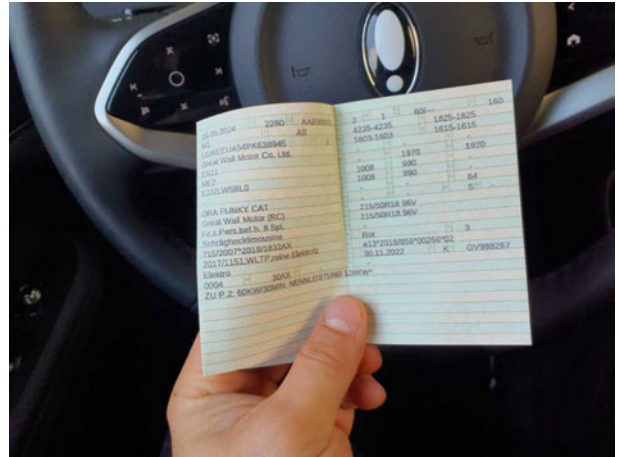 16.05.2024 2280 AAB00021
M1 AB
LGWEEUA54PK638945 /
Great Wall Motor Co. Ltd.
ES11
ME2
E132LW5BL0
ORA FUNKY CAT
Great Wall Motor (RC)
Fz.z.Pers.bef.b. 8 Spl.
Schräghecklimousine
715/2007*2018/1832AX
2017/1151;WLTP;reine Elektro
Elektro
0004 30AX
ZU P.2: 60KW/30MIN: NENNLEISTUNG 126KW*
2 1 60/--- 160
4235-4235 1825-1825
1603-1603 1615-1615
1970 1970
1008 990
1008 990
64
5
215/50R18 96V
215/50R18 96V
Rot 3
e13*2018/858*00266*02
30.11.2022 K GV988267